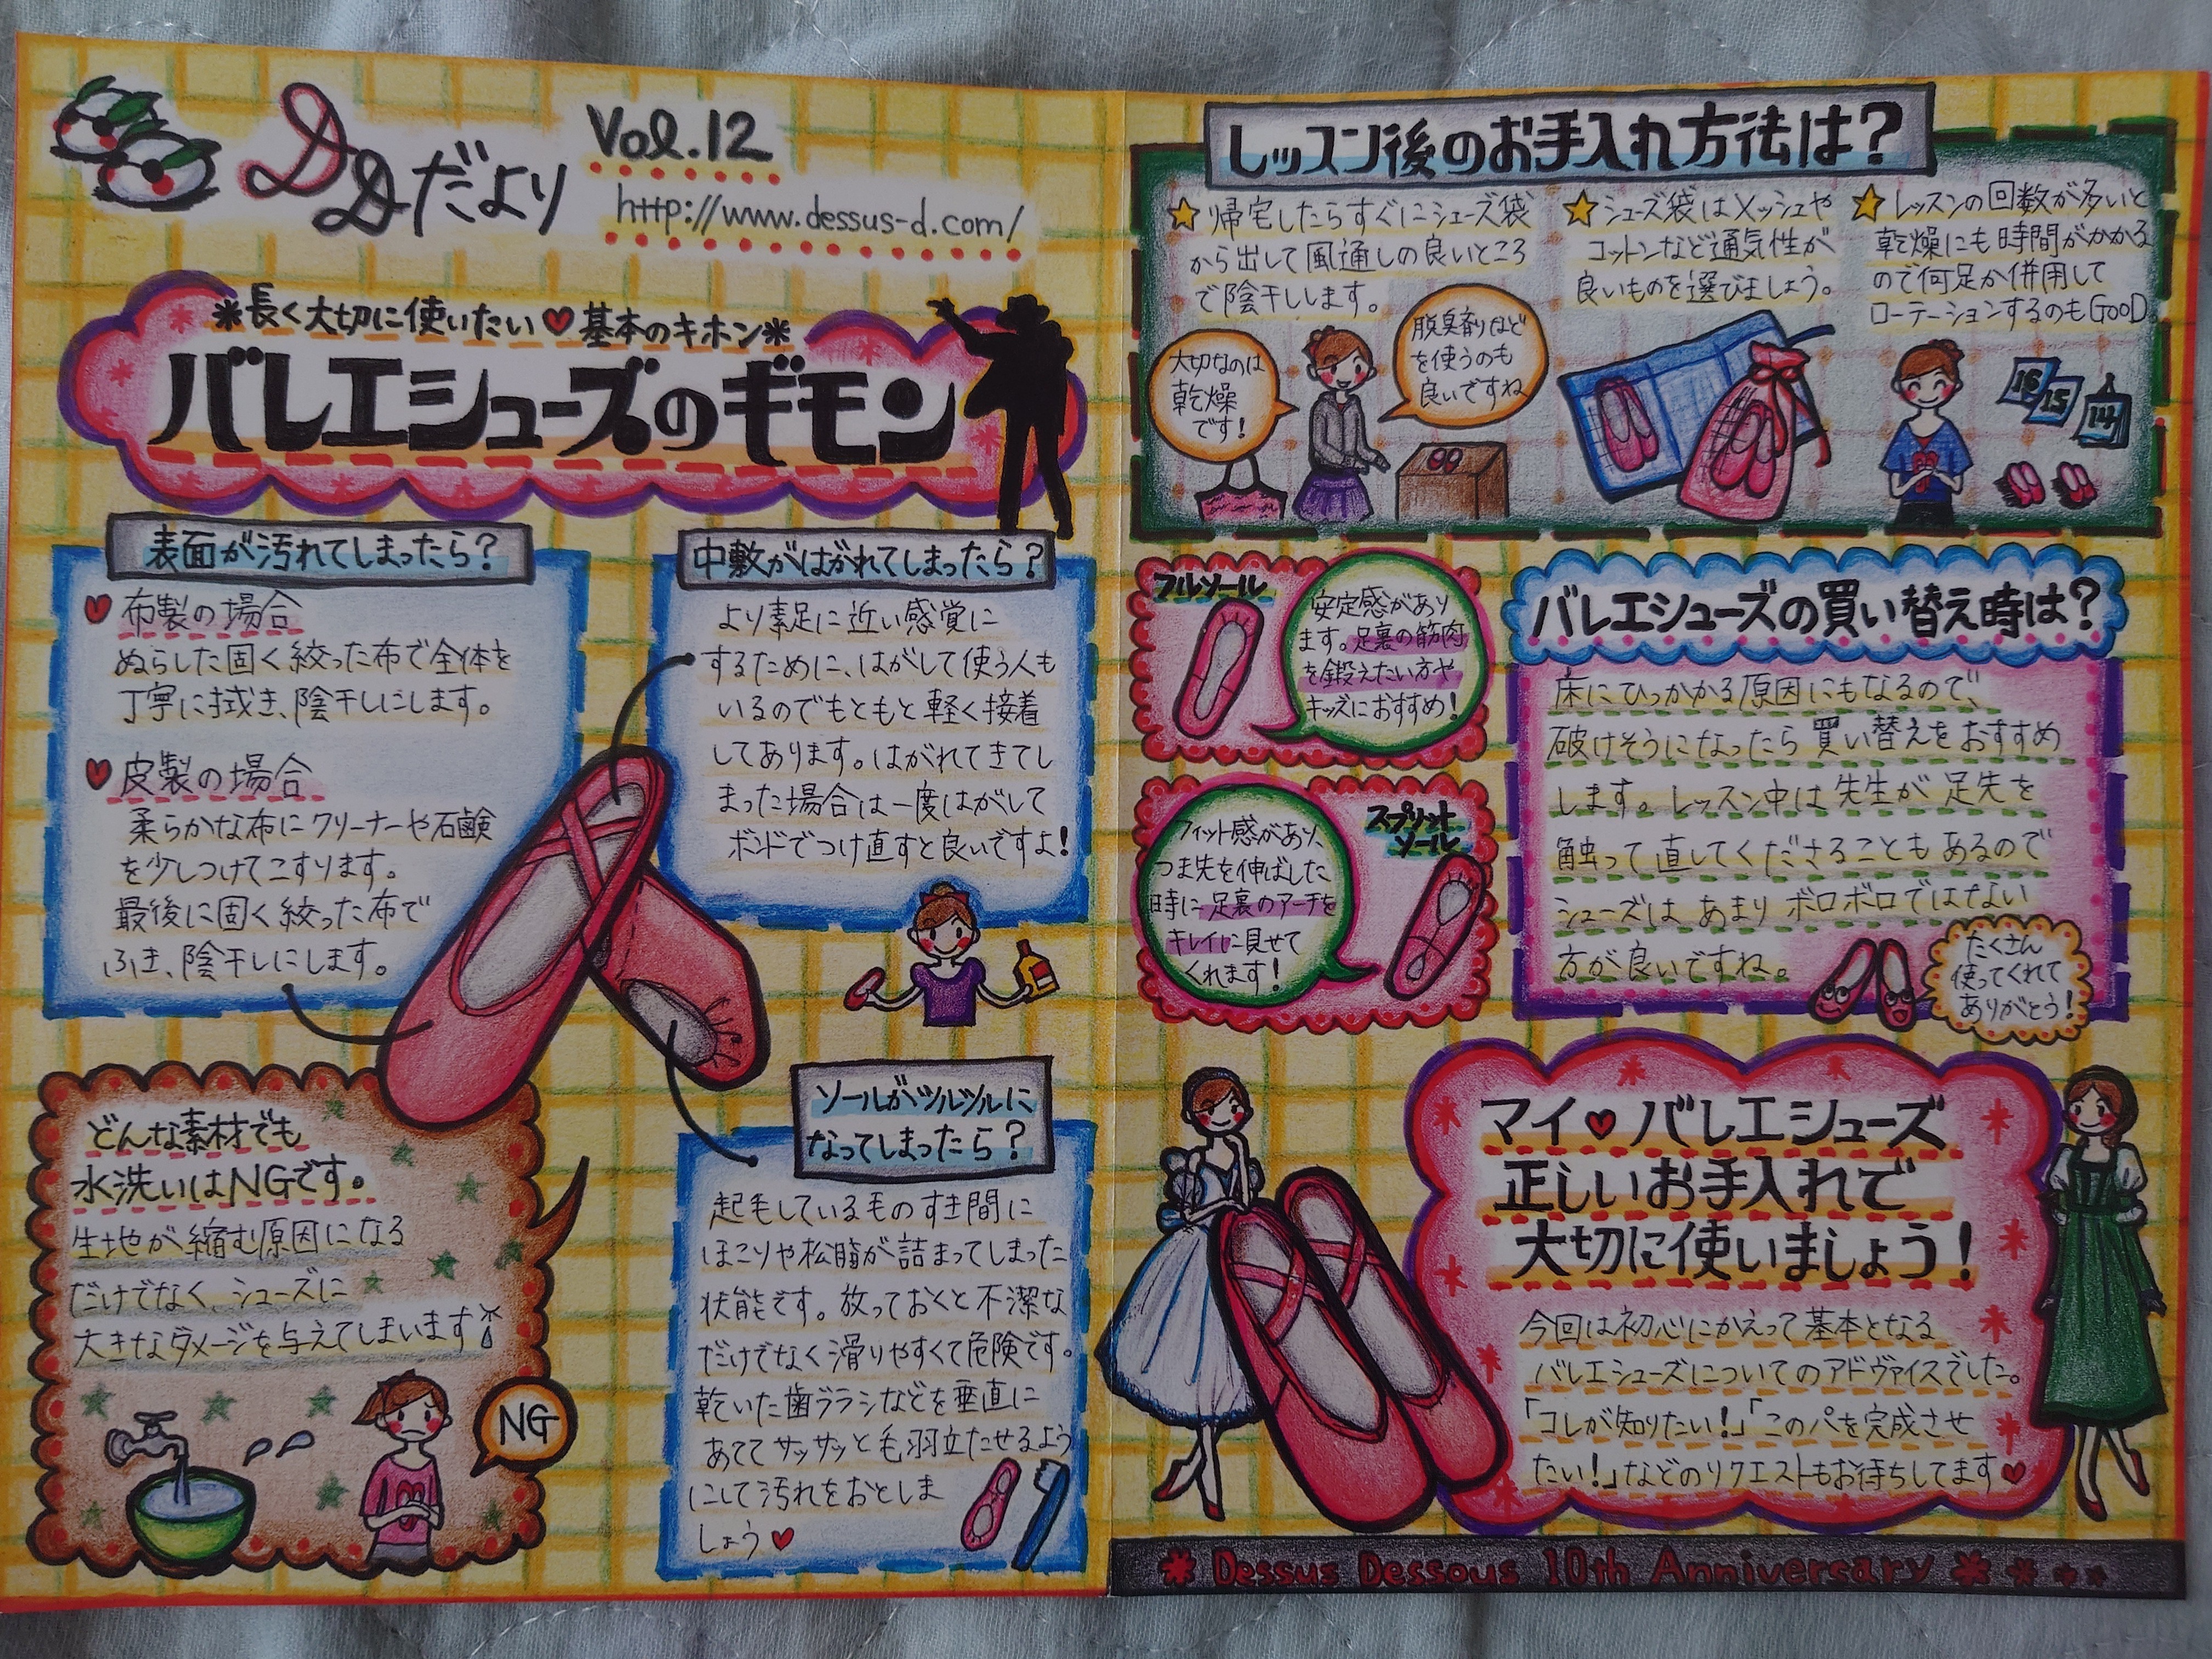 DDだより
Vol.12
http://www.dessus-d.com/
*長く大切に使いたい♥基本のキホン*
バレエシューズのギモン
表面が汚れてしまったら?
♥布製の場合
ぬらした固く絞った布で全体を
丁寧に拭き、陰干しにします。
♥皮製の場合
柔らかな布にクリーナーや石鹸
を少しつけてこすります。
最後に固く絞った布で
ふき、陰干しにします。
中敷がはがれてしまったら?
より素足に近い感覚に
するために、はがして使う人も
いるのでもともと軽く接着
してあります。はがれてきてし
まった場合は一度はがして
ボンドでつけ直すと良いですよ!
どんな素材でも
水洗いはNGです。
生地が縮む原因になる
だけでなく、シューズに
大きなダメージを与えてしまいます
NG
ソールがツルツルに
なってしまったら?
起毛している毛のすき間に
ほこりや松脂が詰まってしまった
状態です。放っておくと不潔な
だけでなく滑りやすくて危険です。
乾いた歯ブラシなどを垂直に
あててサッサッと毛羽立たせるよう
にして汚れをおとしま
しょう♥
レッスン後のお手入れ方法は?
★帰宅したらすぐにシューズ袋
から出して風通しの良いところ
で陰干しします。
大切なのは
乾燥
です!
脱臭剤など
を使うのも
良いですね
★シューズ袋はメッシュや
コットンなど通気性が
良いものを選びましょう。
★レッスンの回数が多いと
乾燥にも時間がかかる
ので何足か併用して
ローテーションするのもGOOD
16
15
14
フルソール
安定感があり
ます。足裏の筋肉
を鍛えたい方や
キッズにおすすめ!
スプリット
ソール
フィット感があり、
つま先を伸ばした
時に足裏のアーチを
キレイに見せて
くれます!
バレエシューズの買い替え時は?
床にひっかかる原因にもなるので、
破けそうになったら買い替えをおすすめ
します。レッスン中は先生が足先を
触って直してくださることもあるので
シューズはあまりボロボロではない
方が良いですね。
たくさん
使ってくれて
ありがとう!
マイ♥バレエシューズ
正しいお手入れで
大切に使いましょう!
今回は初心にかえって基本となる
バレエシューズについてのアドヴァイスでした。
「コレが知りたい!」「このパを完成させ
たい!」などのリクエストもお待ちしてます♥
*Dessus Dessous 10th Anniversary***